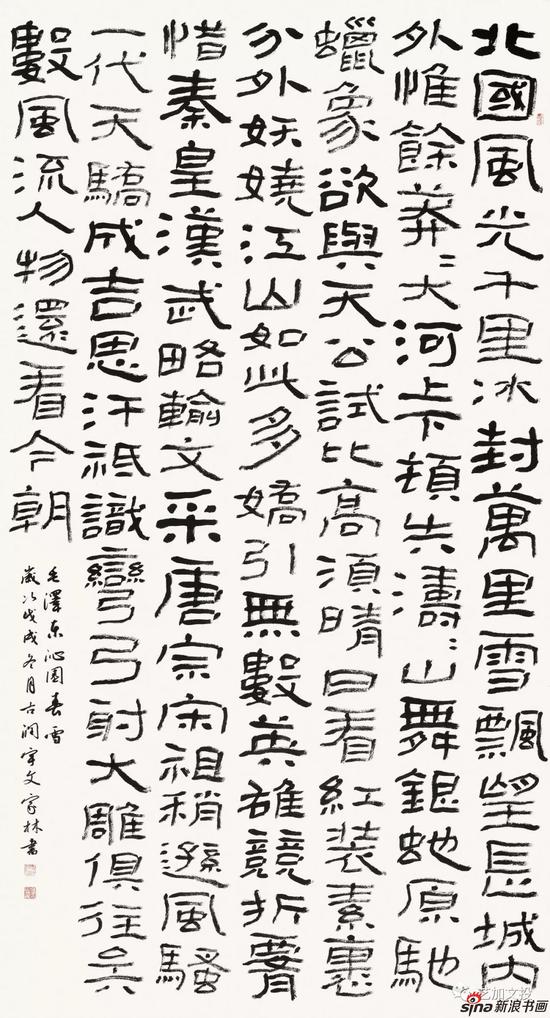 北國風光千里冰封萬里雪飄望長城內
外惟餘莽〻大河上下頓失濤〻山舞銀蛇原馳
蠟象欲與天公試比高須晴日看紅裝素裹
分外妖嬈江山如此多嬌引無數英雄競折腰
惜秦皇漢武略輸文采唐宗宋祖稍遜風騷
一代天驕成吉思汗祗識彎弓射大雕俱往矣
數風流人物還看今朝
毛澤東沁園春雪
歲次戊戌冬月古潤宇文家林書
艺加文投
sina新浪书画